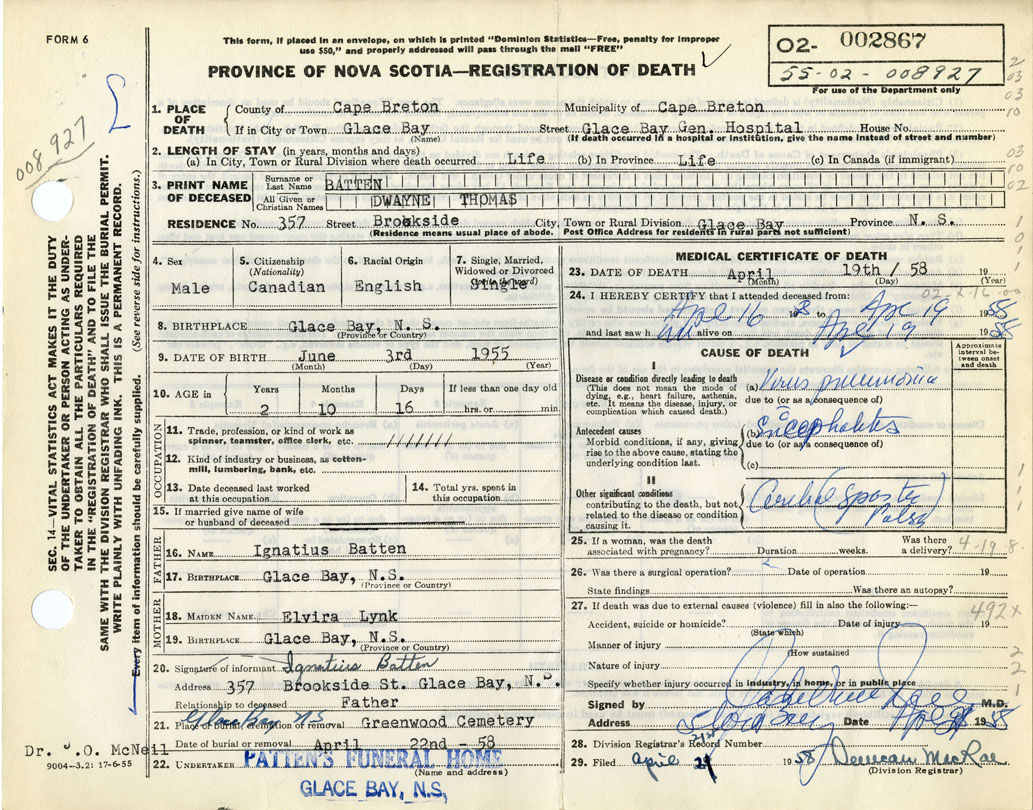 FORM 6
This form, if placed in an envelope, on which is printed "Dominion Statistics—Free, penalty for improper
use $50," and properly addressed will pass through the mail "FREE"
PROVINCE OF NOVA SCOTIA—REGISTRATION OF DEATH
02- 002867
55-02-008927
For use of the Department only
008927
SEC. 14—VITAL STATISTICS ACT MAKES IT THE DUTY
OF THE UNDERTAKER OR PERSON ACTING AS UNDER-
TAKER TO OBTAIN ALL THE PARTICULARS REQUIRED
IN THE "REGISTRATION OF DEATH" AND TO FILE THE
SAME WITH THE DIVISION REGISTRAR WHO SHALL ISSUE THE BURIAL PERMIT.
WRITE PLAINLY WITH UNFADING INK. THIS IS A PERMANENT RECORD.
Every item of information should be carefully supplied. (See reverse side for instructions.)
1. PLACE OF DEATH
County of Cape Breton Municipality of Cape Breton
If in City or Town Glace Bay Street Glace Bay Gen. Hospital House No.
(Name) (If death occurred in a hospital or institution, give the name instead of street and number)
2. LENGTH OF STAY (in years, months and days)
(a) In City, Town or Rural Division where death occurred Life (b) In Province Life (c) In Canada (if immigrant)
3. PRINT NAME OF DECEASED
Surname or Last Name BATTEN
All Given or Christian Names DWAYNE THOMAS
RESIDENCE No. 357 Street Brookside City, Town or Rural Division Glace Bay Province N. S.
(Residence means usual place of abode. Post Office Address for residents in rural parts not sufficient)
4. Sex
Male
5. Citizenship
(Nationality)
Canadian
6. Racial Origin
English
7. Single, Married,
Widowed or Divorced
(write the word)
Single
8. BIRTHPLACE Glace Bay, N. S.
(Province or Country)
9. DATE OF BIRTH June 3rd 1955
(Month) (Day) (Year)
10. AGE in
Years Months Days If less than one day old
2 10 16 hrs. or min.
OCCUPATION
11. Trade, profession, or kind of work as
spinner, teamster, office clerk, etc. ///////
12. Kind of industry or business, as cotton-
mill, lumbering, bank, etc.
13. Date deceased last worked
at this occupation
14. Total yrs. spent in
this occupation
15. If married give name of wife
or husband of deceased
FATHER
16. NAME Ignatius Batten
17. BIRTHPLACE Glace Bay, N.S.
(Province or Country)
MOTHER
18. MAIDEN NAME Elvira Lynk
19. BIRTHPLACE Glace Bay, N.S.
(Province or Country)
20. Signature of informant Ignatius Batten
Address 357 Brookside St. Glace Bay, N.S.
Relationship to deceased Father
21. Place of burial, cremation or removal Greenwood Cemetery
Glace Bay NS
Date of burial or removal April 22nd - 58
Dr. J.O. McNeil
9004-3.2: 17-6-55
22. UNDERTAKER PATTEN'S FUNERAL HOME
(Name and address)
GLACE BAY, N.S.
MEDICAL CERTIFICATE OF DEATH
23. DATE OF DEATH April 19th / 58 19
(Month) (Day) (Year)
24. I HEREBY CERTIFY that I attended deceased from:
Apr 16 19 to Apr 19 1958
and last saw him alive on Apr 19 1958
CAUSE OF DEATH
Approximate interval between onset and death
I
Disease or condition directly leading to death
(This does not mean the mode of
dying, e.g., heart failure, asthenia,
etc. It means the disease, injury, or
complication which caused death.)
(a) Virus pneumonia
due to (or as a consequence of)
Antecedent causes
Morbid conditions, if any, giving
rise to the above cause, stating the
underlying condition last.
(b) Encephalitis
due to (or as a consequence of)
(c)
II
Other significant conditions
contributing to the death, but not
related to the disease or condition
causing it.
Cerebral Spastic
Palsy
25. If a woman, was the death
associated with pregnancy? Duration weeks. Was there
a delivery?
4-19-8
26. Was there a surgical operation? Date of operation 19
State findings Was there an autopsy?
27. If death was due to external causes (violence) fill in also the following:—
492x
Accident, suicide or homicide? Date of injury 19
(State which)
Manner of injury
(How sustained
Nature of injury
Specify whether injury occurred in industry, in home, or in public place
Signed by M.D.
Address Date
28. Division Registrar's Record Number
29. Filed April 21st 1958 Duncan MacRae
(Division Registrar)